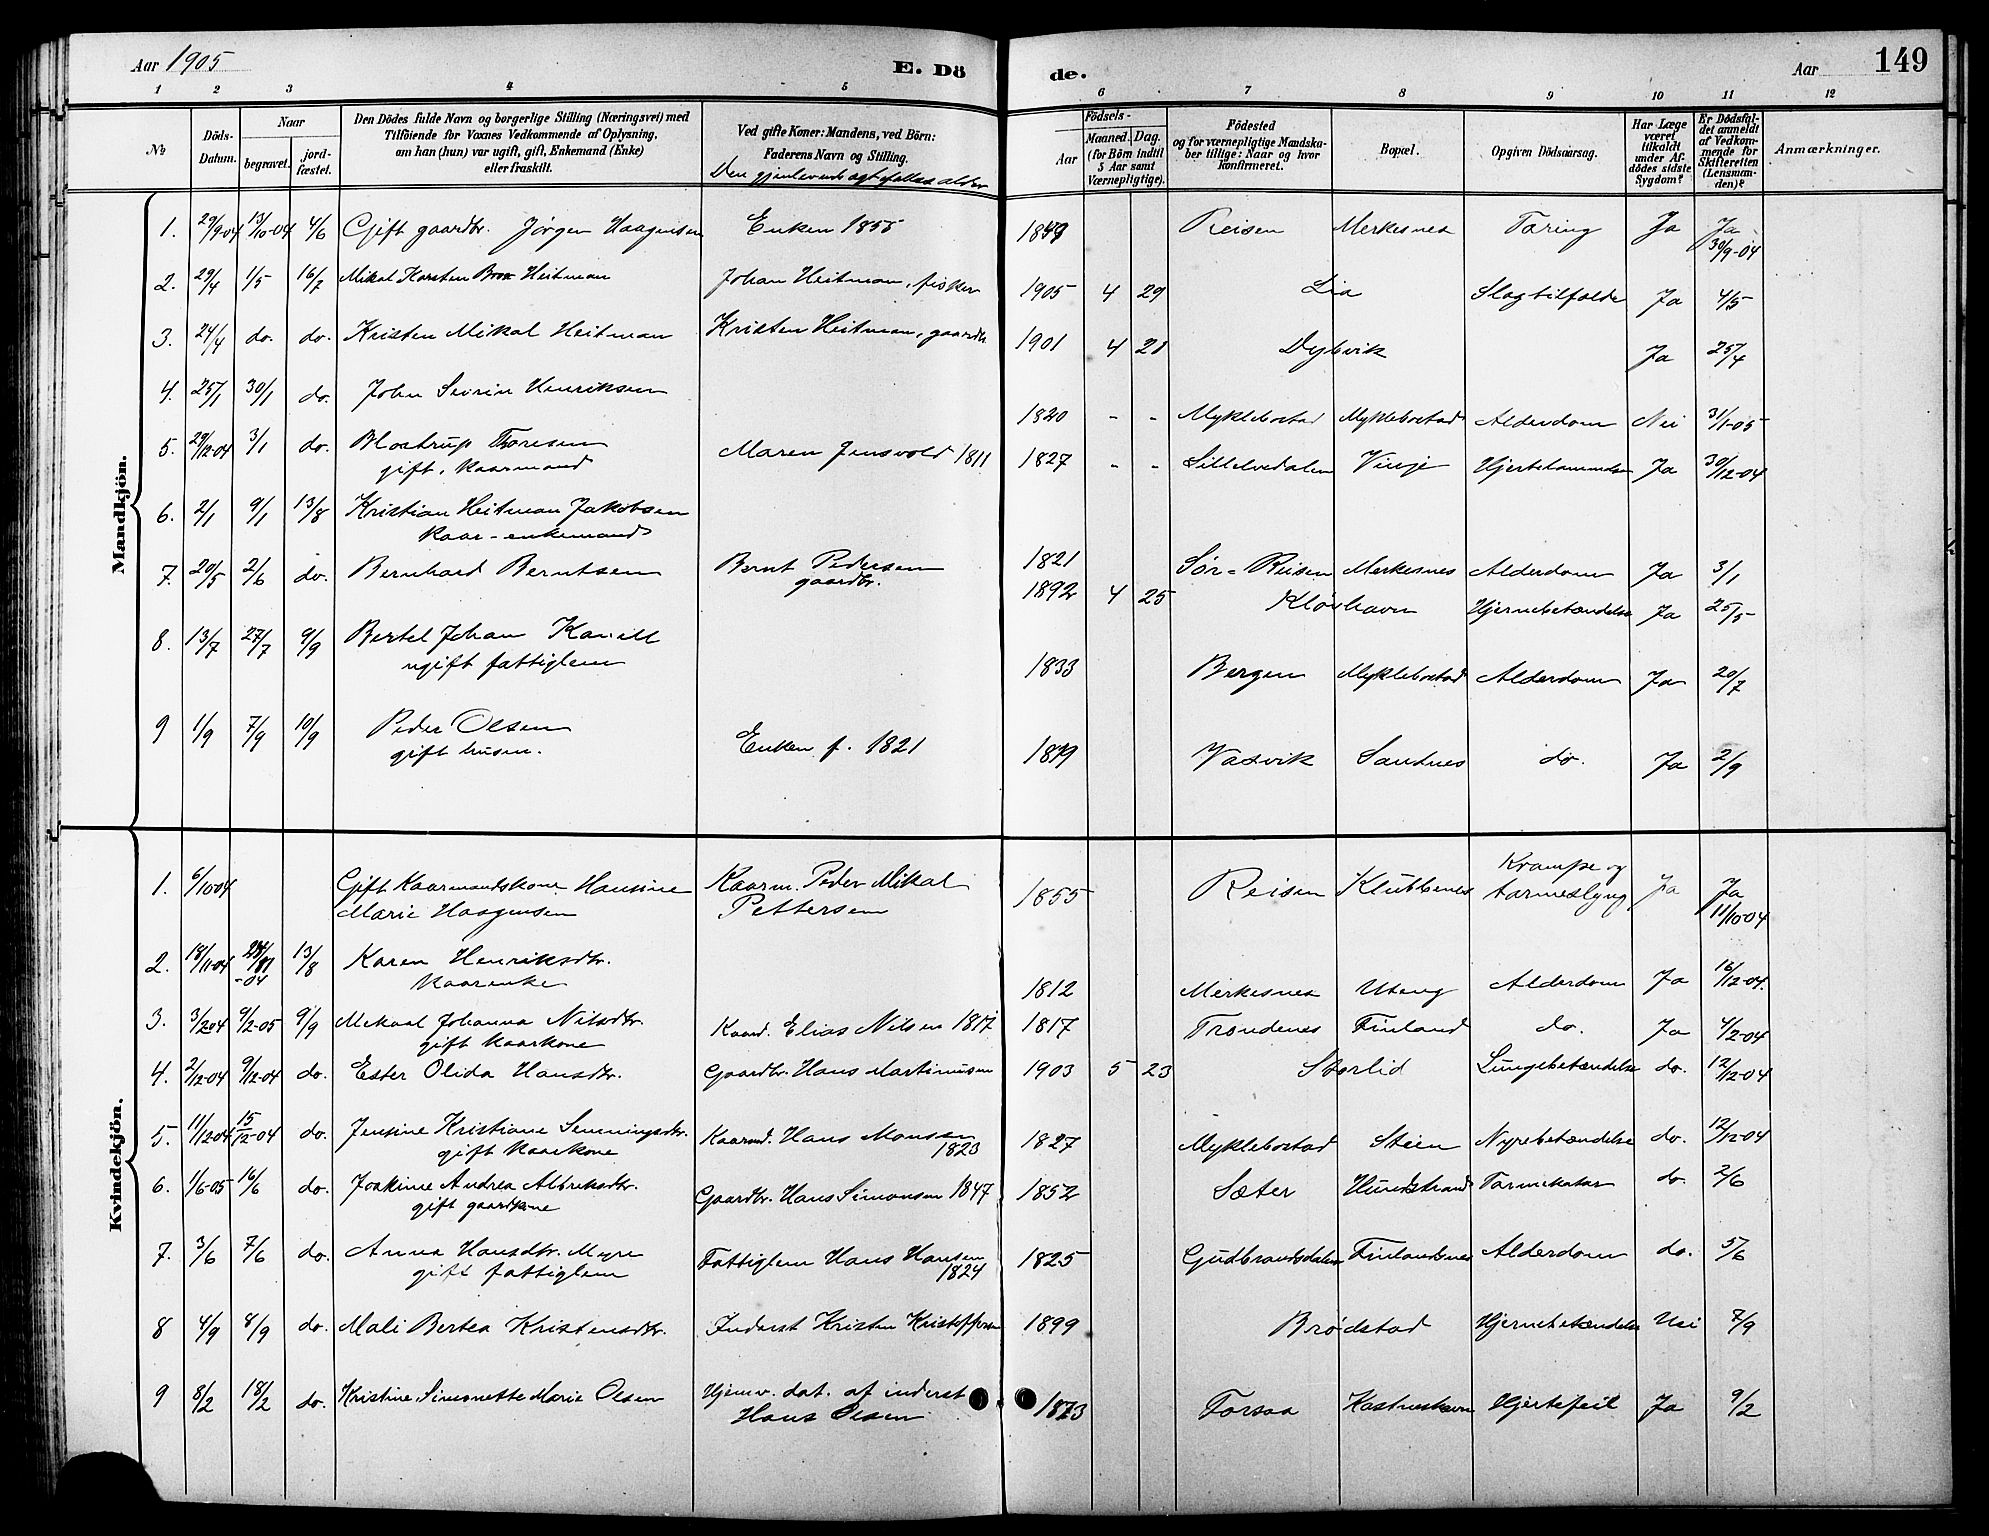 Aar 1905
E. Dö
de.
Aar
149
1 2 3 4 5 6 7 8 9 10 11 12
№
Döds-
Datum.
Naar
begravet.
jord-
fæstet.
Den Dödes fulde Navn og borgerlige Stilling (Næringsvei) med
Tilföiende for Voxnes Vedkommende af Oplysning,
om han (hun) var ugift, gift, Enkemand (Enke)
eller fraskilt.
Ved gifte Koner: Mandens, ved Börn:
Faderens Navn og Stilling.
Den gjenlevende ægtefælles alder
Födsels-
Aar
Maaned.
Dag.
(for Börn indtil
5 Aar samt
Værnepligtige).
Födested
og for værnepligtige Mandska-
ber tillige: Naar og hvor
konfirmeret.
Bopæl.
Opgiven Dödsaarsag.
Har Læge
været
tilkaldt
under Af-
dödes sidste
Sygdom?
Er Dödsfal-
det anmeldt
af Vedkom-
mende for
Skifteretten
(Lensman-
den)?
Anmærkninger.
Mandkjön.
1. 29/9-04 13/10-04 4/6 Gift gaardbr. Jørgen Haagensen Enken 1855 18 Reisen Merkesnes Tæring Ja Ja 30/9-04
2. 29/4 1/5 16/7 Mikal Karsten Heitman Johan Heitman, fisker 1905 4 29 Lia Slagtilfælde Ja 4/5
3. 24/4 do. do. Kristen Mikal Heitman Kristen Heitman, gaardb. 1901 4 21 Dybvik Ja 25/4
4. 25/1 30/1 do. John Sevrin Henriksen 1820 - - Myklebostad Myklebostad Alderdom Nei 31/1-05
5. 29/12-04 3/1 do. Blostrup Thoresen
gift, kaarmand Maren Jensvold 1811 1827 - - Lillelvedalen Vinje Hjertelammelse Ja 30/12-04
6. 2/1 9/1 13/8 Kristian Heitman Jakobsen
kaar-enkemand 1821 Sør-Reisen Merkesnes Alderdom Ja 3/1
7. 20/5 2/6 do. Bernhard Berntsen Bernt Pedersen
gaardbr. 1892 4 25 Kløvhavn Hjernebetændelse Ja 25/5
8. 13/7 27/7 9/9 Bertel Johan
ugift fattiglem 1833 Bergen Myklebostad Alderdom Ja 20/7
9 1/9 7/9 10/9 Peder Olsen
gift husm. Enken f. 1821 1819 Vasvik Sandnes do. Ja 2/9
Kvindekjön.
1. 6/10-04 Gift Kaarmandskone Hansine
Marie Haagensen Kaarm. Peder Mikal
Pettersen 1855 Reisen Klubbenes Krampe og
tarmeslyng Ja Ja
11/10-04
2. 18/11-04 13/8 Karen Henriksdtr.
Kaarenke 1812 Merkesnes Uteng Alderdom Ja 16/12-04.
3. 3/2-04 9/2-05 9/9 Mekaal Johanna Nilsdtr.
gift kaarkone Kaard. Elias Nilsen 1817 1817 Trondenes Finland do. Ja 4/2-04
4. 2/12-04 9/12-04 do. Ester Olida Hansdtr. Gaardbr. Hans Martinusen 1903 5 23 Storlid Lungebetændelse do. 12/12-04
5. 11/12-04 15/12-04 do. Jensine Kristiane Semmingsdtr.
gift kaarkone Kaarmd. Hans Monsen
1823 1827 Myklebostad Steien Nyrebetændelse do. 12/12-04
6. 1/6-05 16/6 do. Joakime Andrea Albriksdtr.
gift gaardkone Gaardbr. Hans Simonsen 1847 1852 Sæter Hundstrand Tarmekatar do. 2/6
7. 3/6 7/6 do. Anna Hansdtr. Myre
gift fattiglem Fattiglem Hans Hansen
1824 1825 Gudbrandsdalen Finlandsnes Alderdom do. 5/6
8 4/9 8/9 do. Mali Bertea Kristensdtr. Inderst Kristen Kristoffersen 1899 Brødstad Hjernebetændelse Nei 7/9
9 8/2 18/2 do. Kristine Simonette Marie Olsen Hjemv. dat. af inderst
Hans Olsen 1873 Forsaa Kastneshavn Hjertefeil Ja 9/2